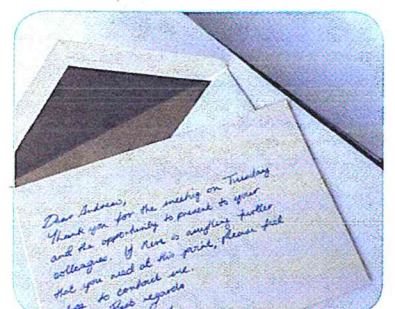 Dear Andrew,
Thank you for the meeting on Tuesday
and the opportunity to present to your
colleagues. If there is anything further
that you need at this point, please feel
free to contact me.
Best regards